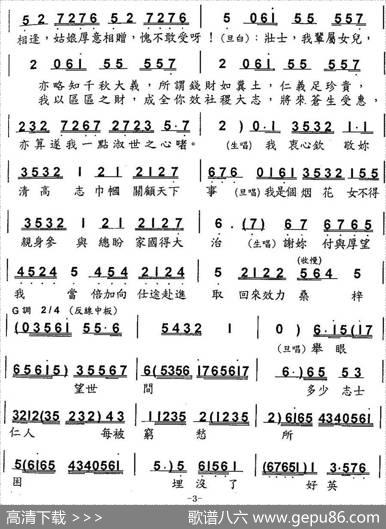 5 2 7276 5 2 7276 5 061 55 557
相逢，姑娘厚意相贈，愧不敢受呀！(旦白)：壯士，我輩屬女兒，
2 061 55 557 2 061 55 557
亦略知千秋大義，所謂錢財如糞土，仁義足珍貴，
我以區區之財，成全你效社稷大志，將來蒼生受惠，
232 7267 2723 5·7 2) 0·1 3532 1·1
亦算遂我一點淑世之心啫。(生唱) 我 衷心欽 敬妳
3532 1 21 2127 676 0161 3532 121
清高 志 巾幗 關顧天下 事 (旦唱)我是個 烟 花 女不得
3532 1 21 2127 6·(7) 67 6765
親身參 與 總盼 家國得大 治 (生唱)謝妳 付與厚望
(收慢)
4524 5 454 2124 5 2122 564 5
我 當 倍加向 仕途赴進 取 回來效力 桑 梓
G調 2/4 (反線中板)
(03561 55·6 5432 1 0) 6·15(17
(旦唱) 舉 眼
65615) 35567 6(5356 1765617 6·)65 53
望世 間 多少志士
3212(35 232)43 11235 2(1235 2)6165 4340561
仁人 每被 窮 愁 所
5(6165 4340561 5·)5 61561 (67651) 3·576
困 埋 沒了 好英
-3-
高清下载 >>> 歌谱八六 www.gepu86.com